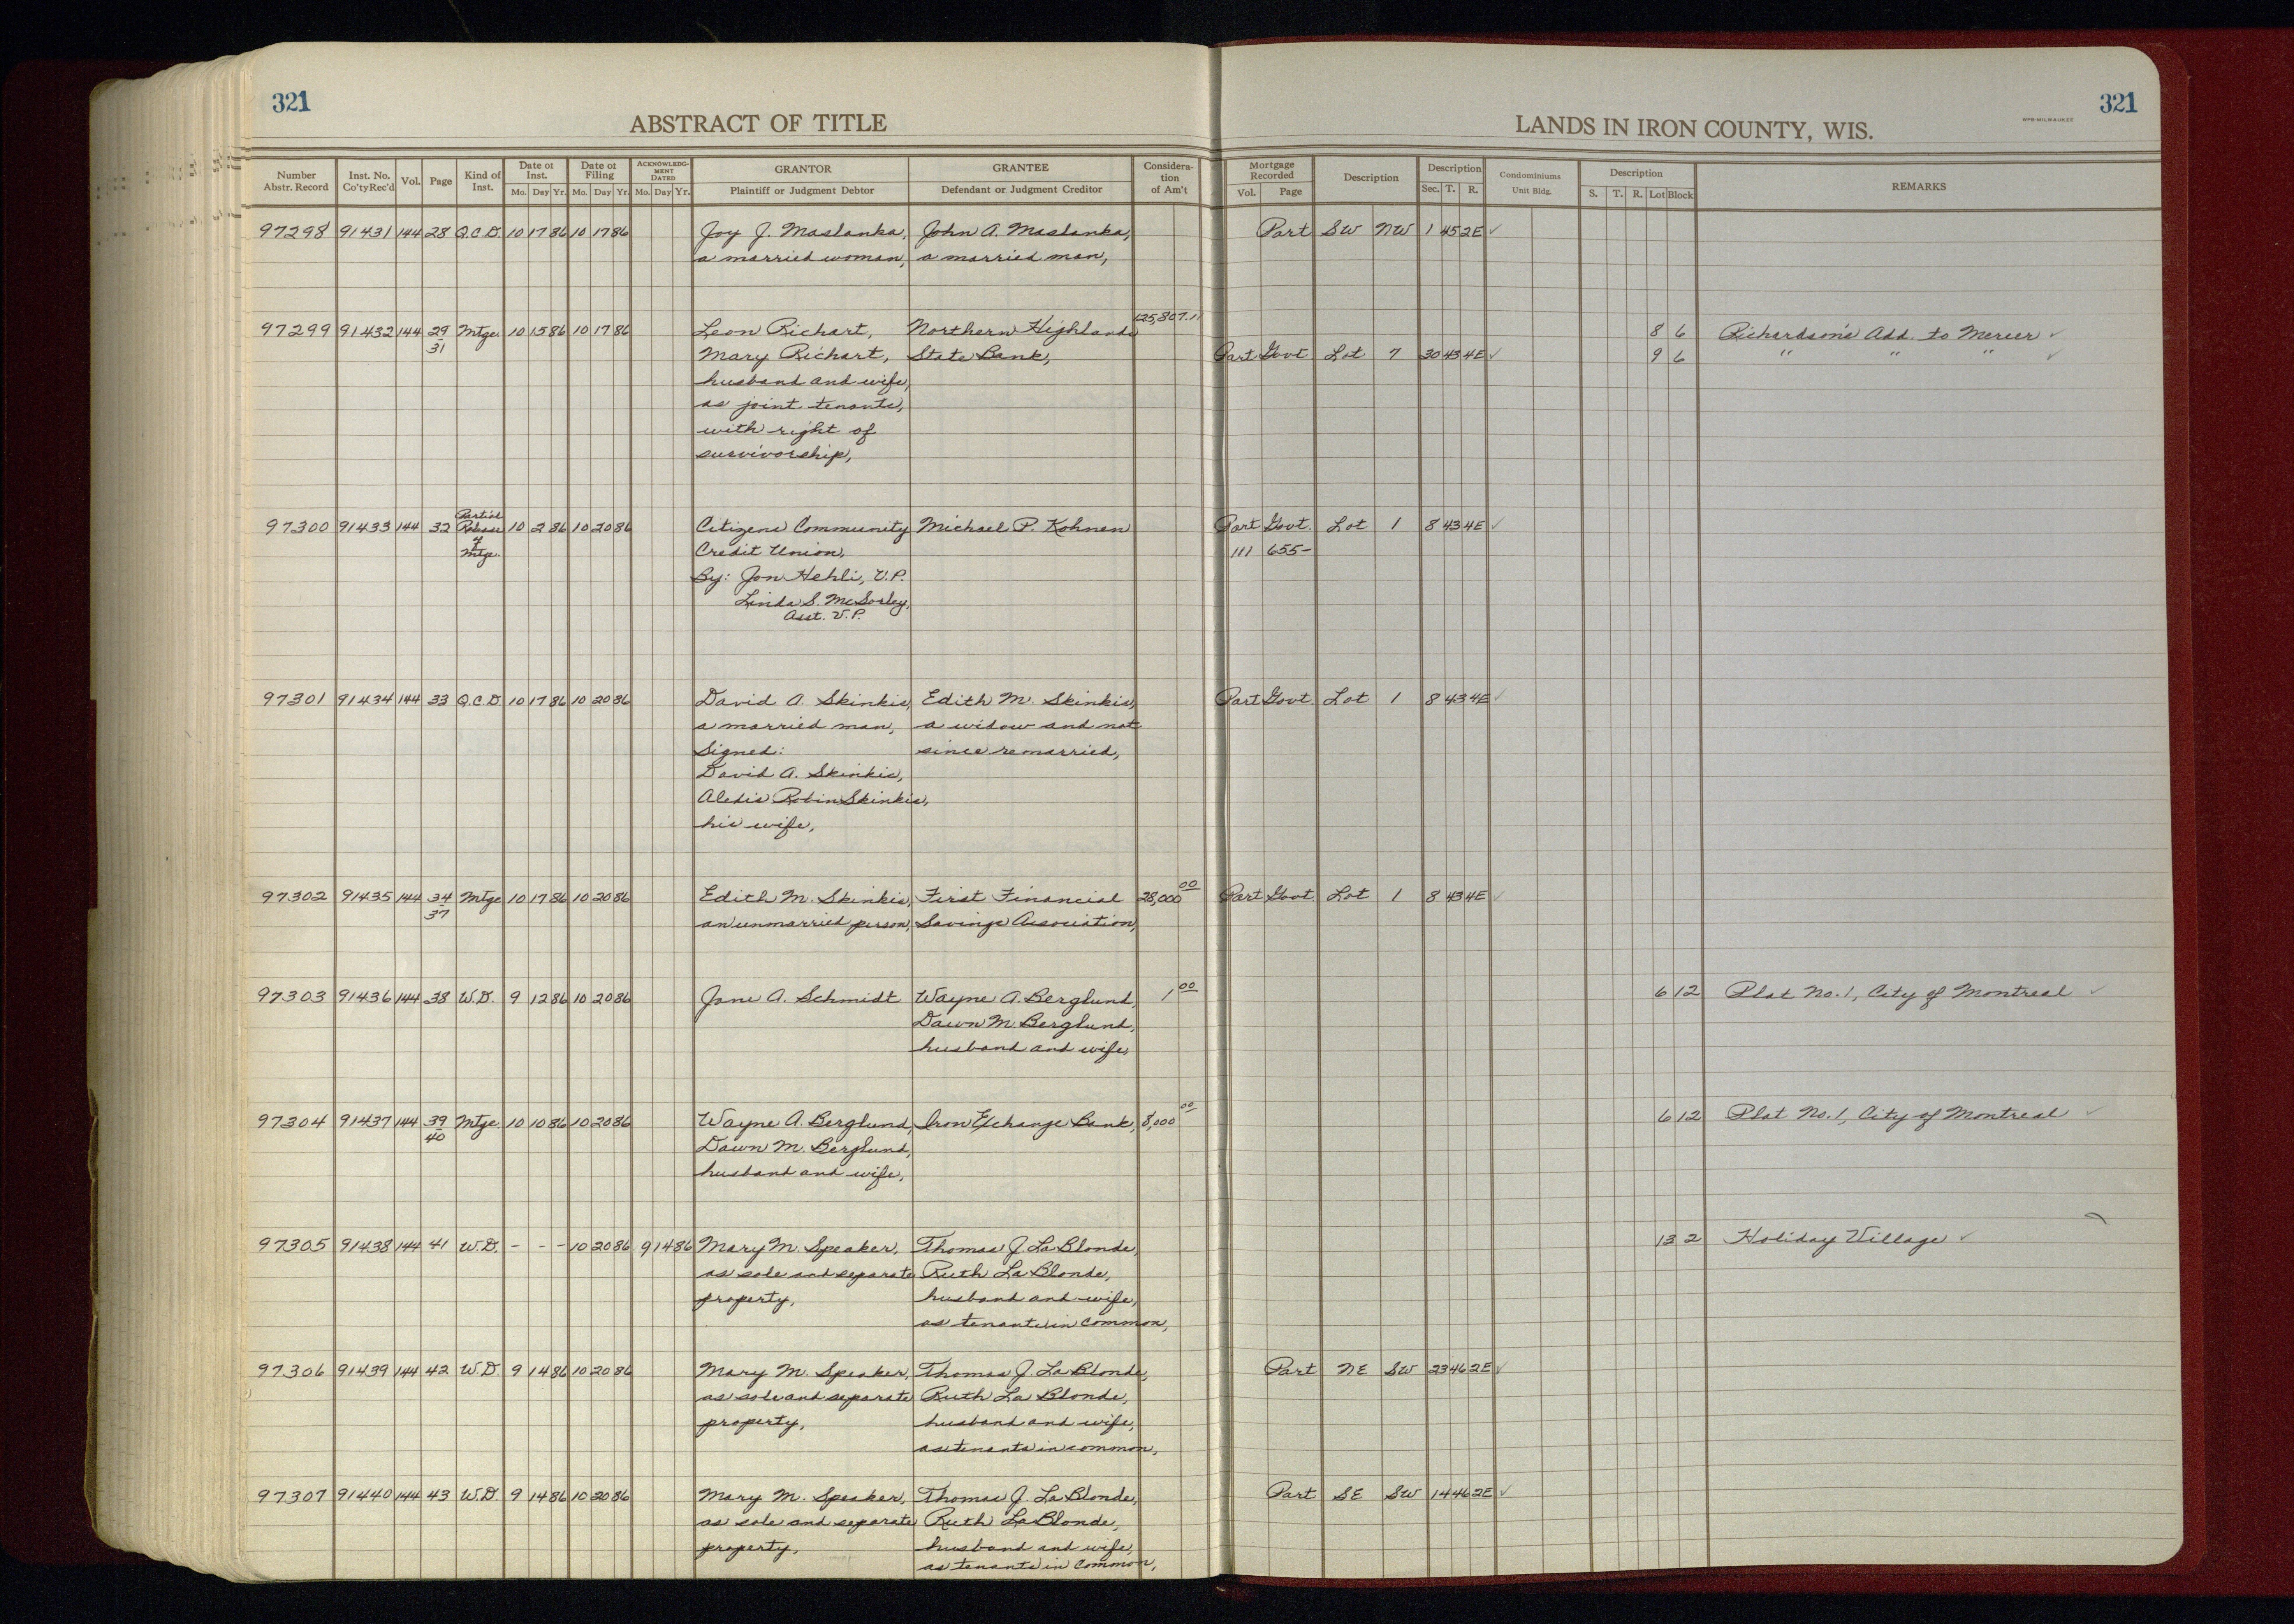 321
ABSTRACT OF TITLE
Number Abstr. Record | Inst. No. Co'ty Rec'd | Vol. | Page | Kind of Inst. | Date of Inst. Mo. Day Yr. | Date of Filing Mo. Day Yr. | ACKNOWLEDGMENT DATED Mo. Day Yr. | GRANTOR Plaintiff or Judgment Debtor | GRANTEE Defendant or Judgment Creditor | Consideration of Am't
321
LANDS IN IRON COUNTY, WIS.
MPB-MILWAUKEE
Mortgage Recorded Vol. Page | Description | Description Sec. T. R. | Condominiums Unit Bldg. | Description S. T. R. Lot Block | REMARKS
97298 91431 144 28 Q.C.D. 10 17 86 10 17 86 Joy J. Maslanka, John A. Maslanka, Part SW NW 1 45 2E ✓
a married woman, a married man,
97299 91432 144 29-31 Mtge. 10 15 86 10 17 86 Leon Richart, Northern Highlands 125,807.11 8 6 Richardson's Add. to Mercer ✓
Mary Richart, State Bank, Part Govt. Lot 7 30 43 4E ✓ 9 6 " " " ✓
husband and wife,
as joint tenants,
with right of
survivorship,
97300 91433 144 32 Partial Release of Mtge. 10 2 86 10 20 86 Citizens Community Michael P. Kohnen Part Govt. Lot 1 8 43 4E ✓
Credit Union, 111 655-
By: Jon Hehli, V.P.
Linda S. McSorley,
Asst. V.P.
97301 91434 144 33 Q.C.D. 10 17 86 10 20 86 David A. Skinkis, Edith M. Skinkis, Part Govt. Lot 1 8 43 4E ✓
a married man, a widow and not
Signed: since remarried,
David A. Skinkis,
Robin Skinkis,
his wife,
97302 91435 144 34-37 Mtge 10 17 86 10 20 86 Edith M. Skinkis, First Financial 28,000 00 Part Govt. Lot 1 8 43 4E ✓
an unmarried person, Savings Association,
97303 91436 144 38 W.D. 9 12 86 10 20 86 Jane A. Schmidt Wayne A. Berglund, 1 00 6 12 Plat No. 1, City of Montreal ✓
Dawn M. Berglund,
husband and wife,
97304 91437 144 39-40 Mtge. 10 10 86 10 20 86 Wayne A. Berglund, Iron Exchange Bank, 8,000 00 6 12 Plat No. 1, City of Montreal ✓
Dawn M. Berglund,
husband and wife,
97305 91438 144 41 W.D. - - - 10 20 86 9 14 86 Mary M. Speaker, Thomas J. La Blonde, 13 2 Holiday Village ✓
as sole and separate Ruth La Blonde,
property, husband and wife,
as tenants in common,
97306 91439 144 42 W.D. 9 14 86 10 20 86 Mary M. Speaker, Thomas J. La Blonde, Part NE SW 23 46 2E ✓
as sole and separate Ruth La Blonde,
property, husband and wife,
as tenants in common,
97307 91440 144 43 W.D. 9 14 86 10 20 86 Mary M. Speaker, Thomas J. La Blonde, Part SE SW 14 46 2E ✓
as sole and separate Ruth La Blonde,
property, husband and wife,
as tenants in common,